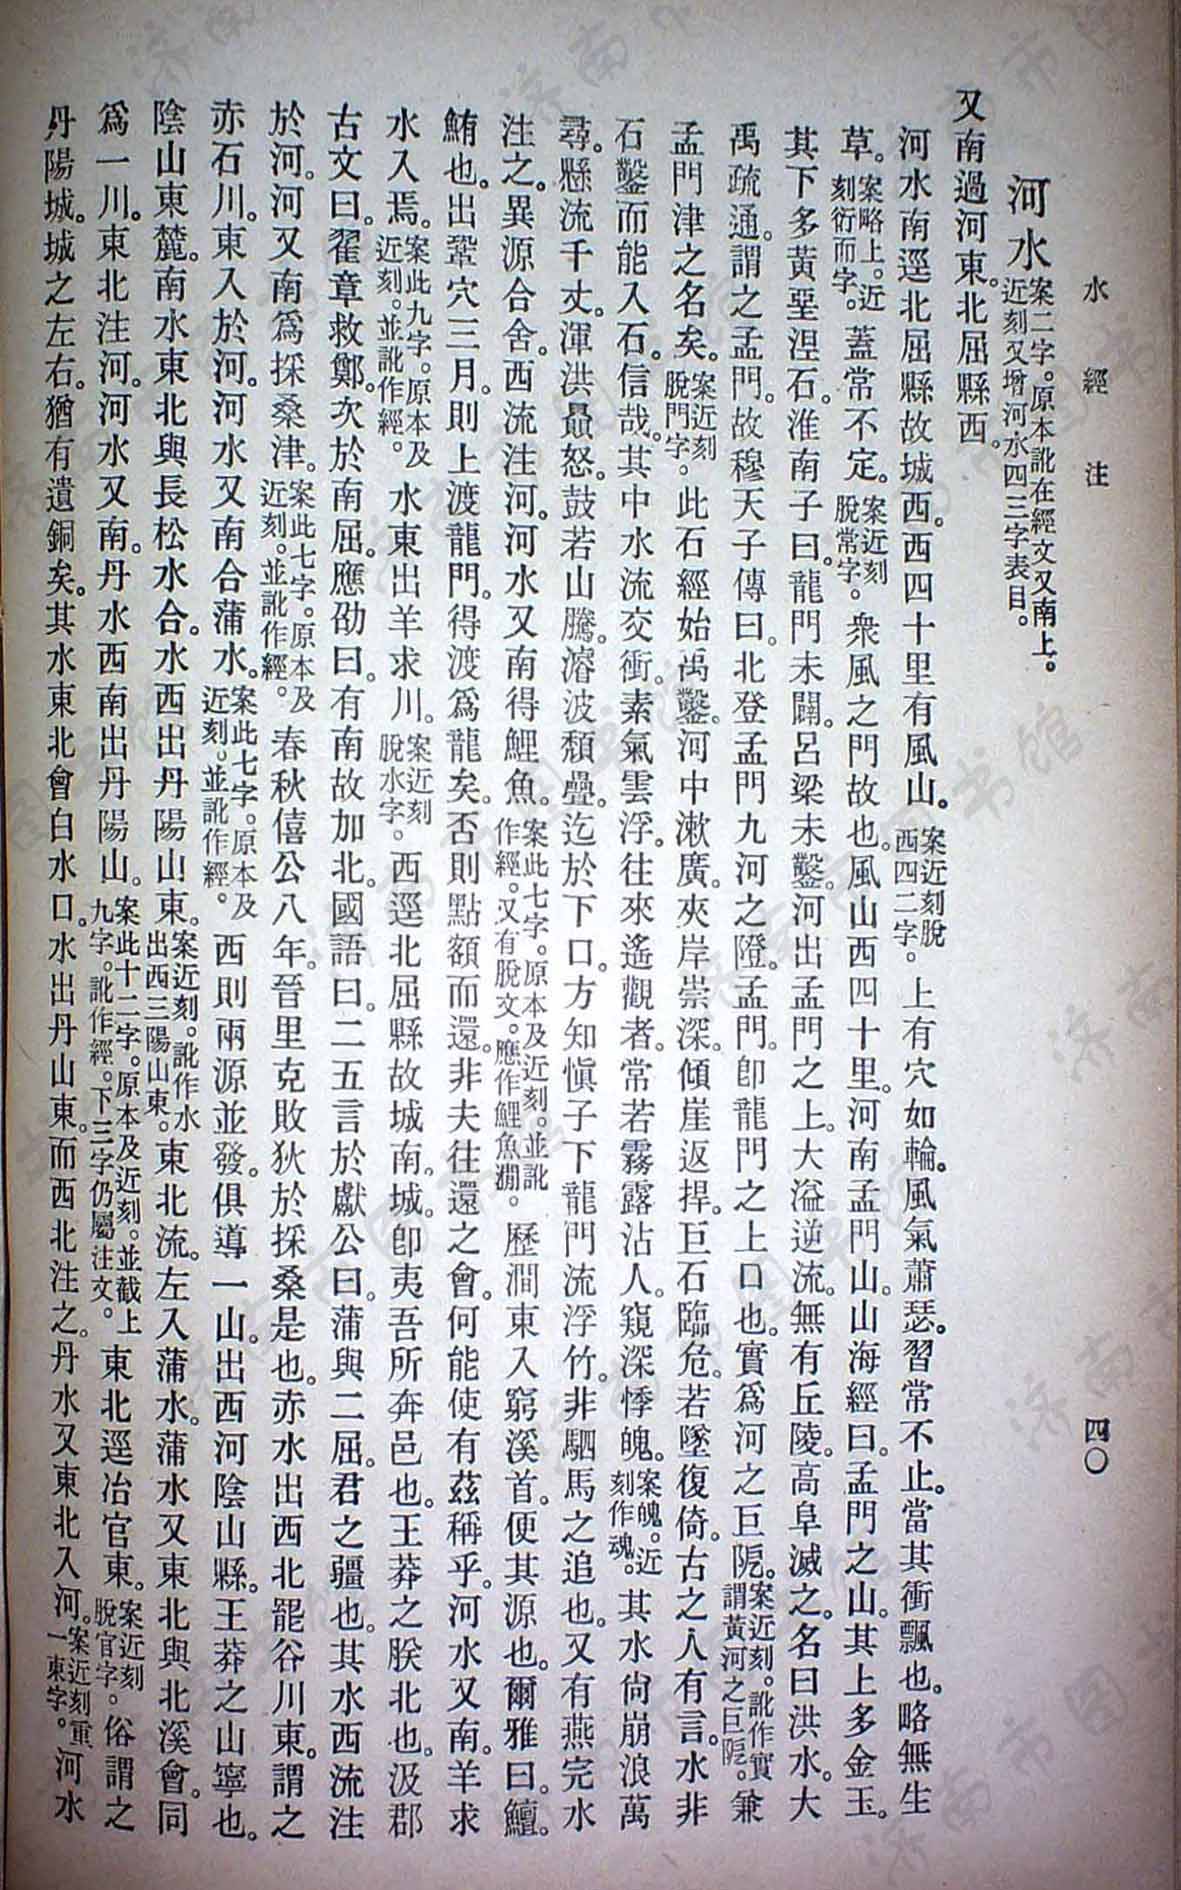 水經注　四〇
河水案二字。原本訛在經文又南上。近刻又增河水四三字表目。
又南過河東。北屈縣西。
河水南逕北屈縣故城西。西四十里有風山。案近刻脫西四二字。上有穴如輪。風氣蕭瑟。習常不止。當其衝飄也。略無生
草。案略上。近刻衍而字。蓋常不定。案近刻脫常字。衆風之門故也。風山西四十里。河南孟門山。山海經曰。孟門之山。其上多金玉。
其下多黃堊涅石。淮南子曰。龍門未闢。呂梁未鑿。河出孟門之上。大溢逆流。無有丘陵。高阜滅之。名曰洪水。大
禹疏通。謂之孟門。故穆天子傳曰。北登孟門九河之隥。孟門。卽龍門之上口也。實爲河之巨阸。案近刻。訛作實謂黃河之巨阸。兼
孟門津之名矣。案近刻脫門字。此石經始禹鑿。河中漱廣。夾岸崇深。傾崖返捍。巨石臨危。若墜復倚。古之人有言。水非
石鑿而能入石。信哉。其中水流交衝。素氣雲浮。往來遙觀者。常若霧露沾人。窺深悸魄。案魄。近刻作魂。其水尙崩浪萬
尋。懸流千丈。渾洪贔怒。鼓若山騰。濬波頹疊。迄於下口。方知愼子下龍門流浮竹。非駟馬之追也。又有燕完水
注之。異源合舍。西流注河。河水又南得鯉魚。案此七字。原本及近刻。並訛作經。又有脫文。應作鯉魚澗。歷澗東入窮溪首。便其源也。爾雅曰。鱣。
鮪也。出鞏穴三月。則上渡龍門。得渡爲龍矣。否則點額而還。非夫往還之會。何能使有茲稱乎。河水又南。羊求
水入焉。案此九字。原本及近刻。並訛作經。水東出羊求川。案近刻脫水字。西逕北屈縣故城南。城。卽夷吾所奔邑也。王莽之朕北也。汲郡
古文曰。翟章救鄭。次於南屈。應劭曰。有南故加北。國語曰。二五言於獻公曰。蒲與二屈。君之疆也。其水西流注
於河。河又南爲採桑津。案此七字。原本及近刻。並訛作經。春秋僖公八年。晉里克敗狄於採桑是也。赤水出西北罷谷川東。謂之
赤石川。東入於河。河水又南合蒲水。案此七字。原本及近刻。並訛作經。西則兩源並發。俱導一山。出西河陰山縣。王莽之山寧也。
陰山東麓。南水東北與長松水合。水西出丹陽山東。案近刻。訛作水出西三陽山東。東北流。左入蒲水。蒲水又東北與北溪會。同
爲一川。東北注河。河水又南。丹水西南出丹陽山。案此十二字。原本及近刻。並截上九字。訛作經。下三字仍屬注文。東北逕冶官東。案近刻脫官字。俗謂之
丹陽城。城之左右。猶有遺銅矣。其水東北會白水口。水出丹山東。而西北注之。丹水又東北入河。案近刻重一東字。河水